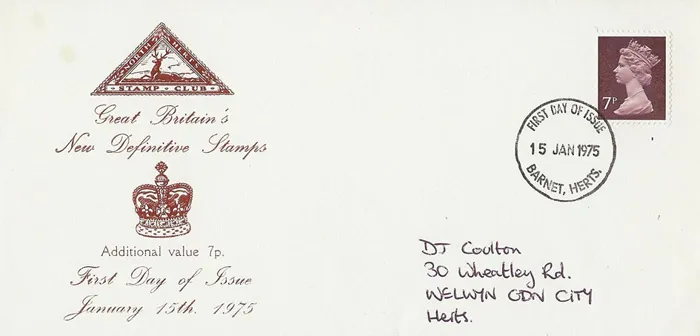 NORTH HERTS
STAMP CLUB
Great Britain's
New Definitive Stamps
Additional value 7p.
First Day of Issue
January 15th. 1975
7P
FIRST DAY OF ISSUE
15 JAN 1975
BARNET, HERTS.
DJ Coulton
30 Wheatley Rd.
WELWYN GDN CITY
Herts.